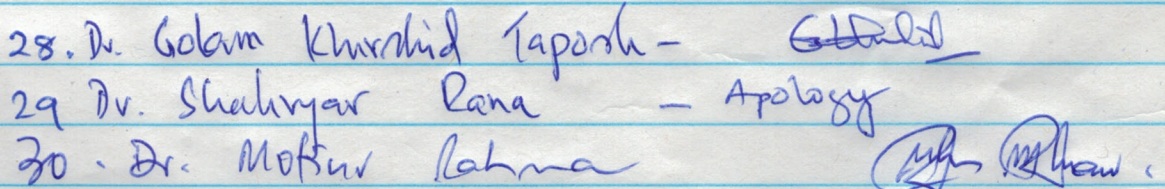 28. Dr. Golam Khurshid Taposh -
29 Dr. Shahryar Rana - Apology
30. Dr. Mofizur Rahman